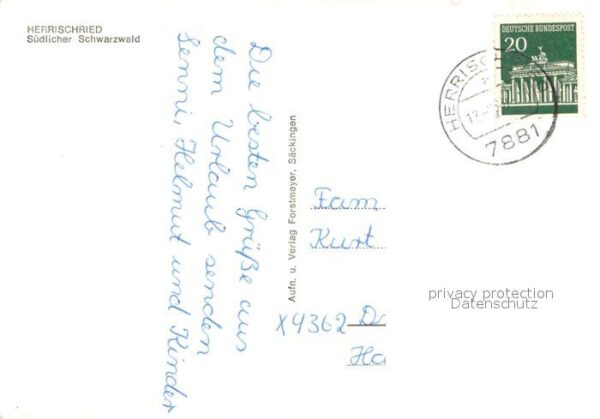 HERRISCHRIED
Südlicher Schwarzwald
Die besten Grüße aus
dem Urlaub senden
Senni, Helmut und Kinder
Aufn. u. Verlag Forstmeyer, Säckingen
DEUTSCHE BUNDESPOST
20
HERRISC
7881
Fam
Kurt
X9362 D
Ha
privacy protection
Datenschutz